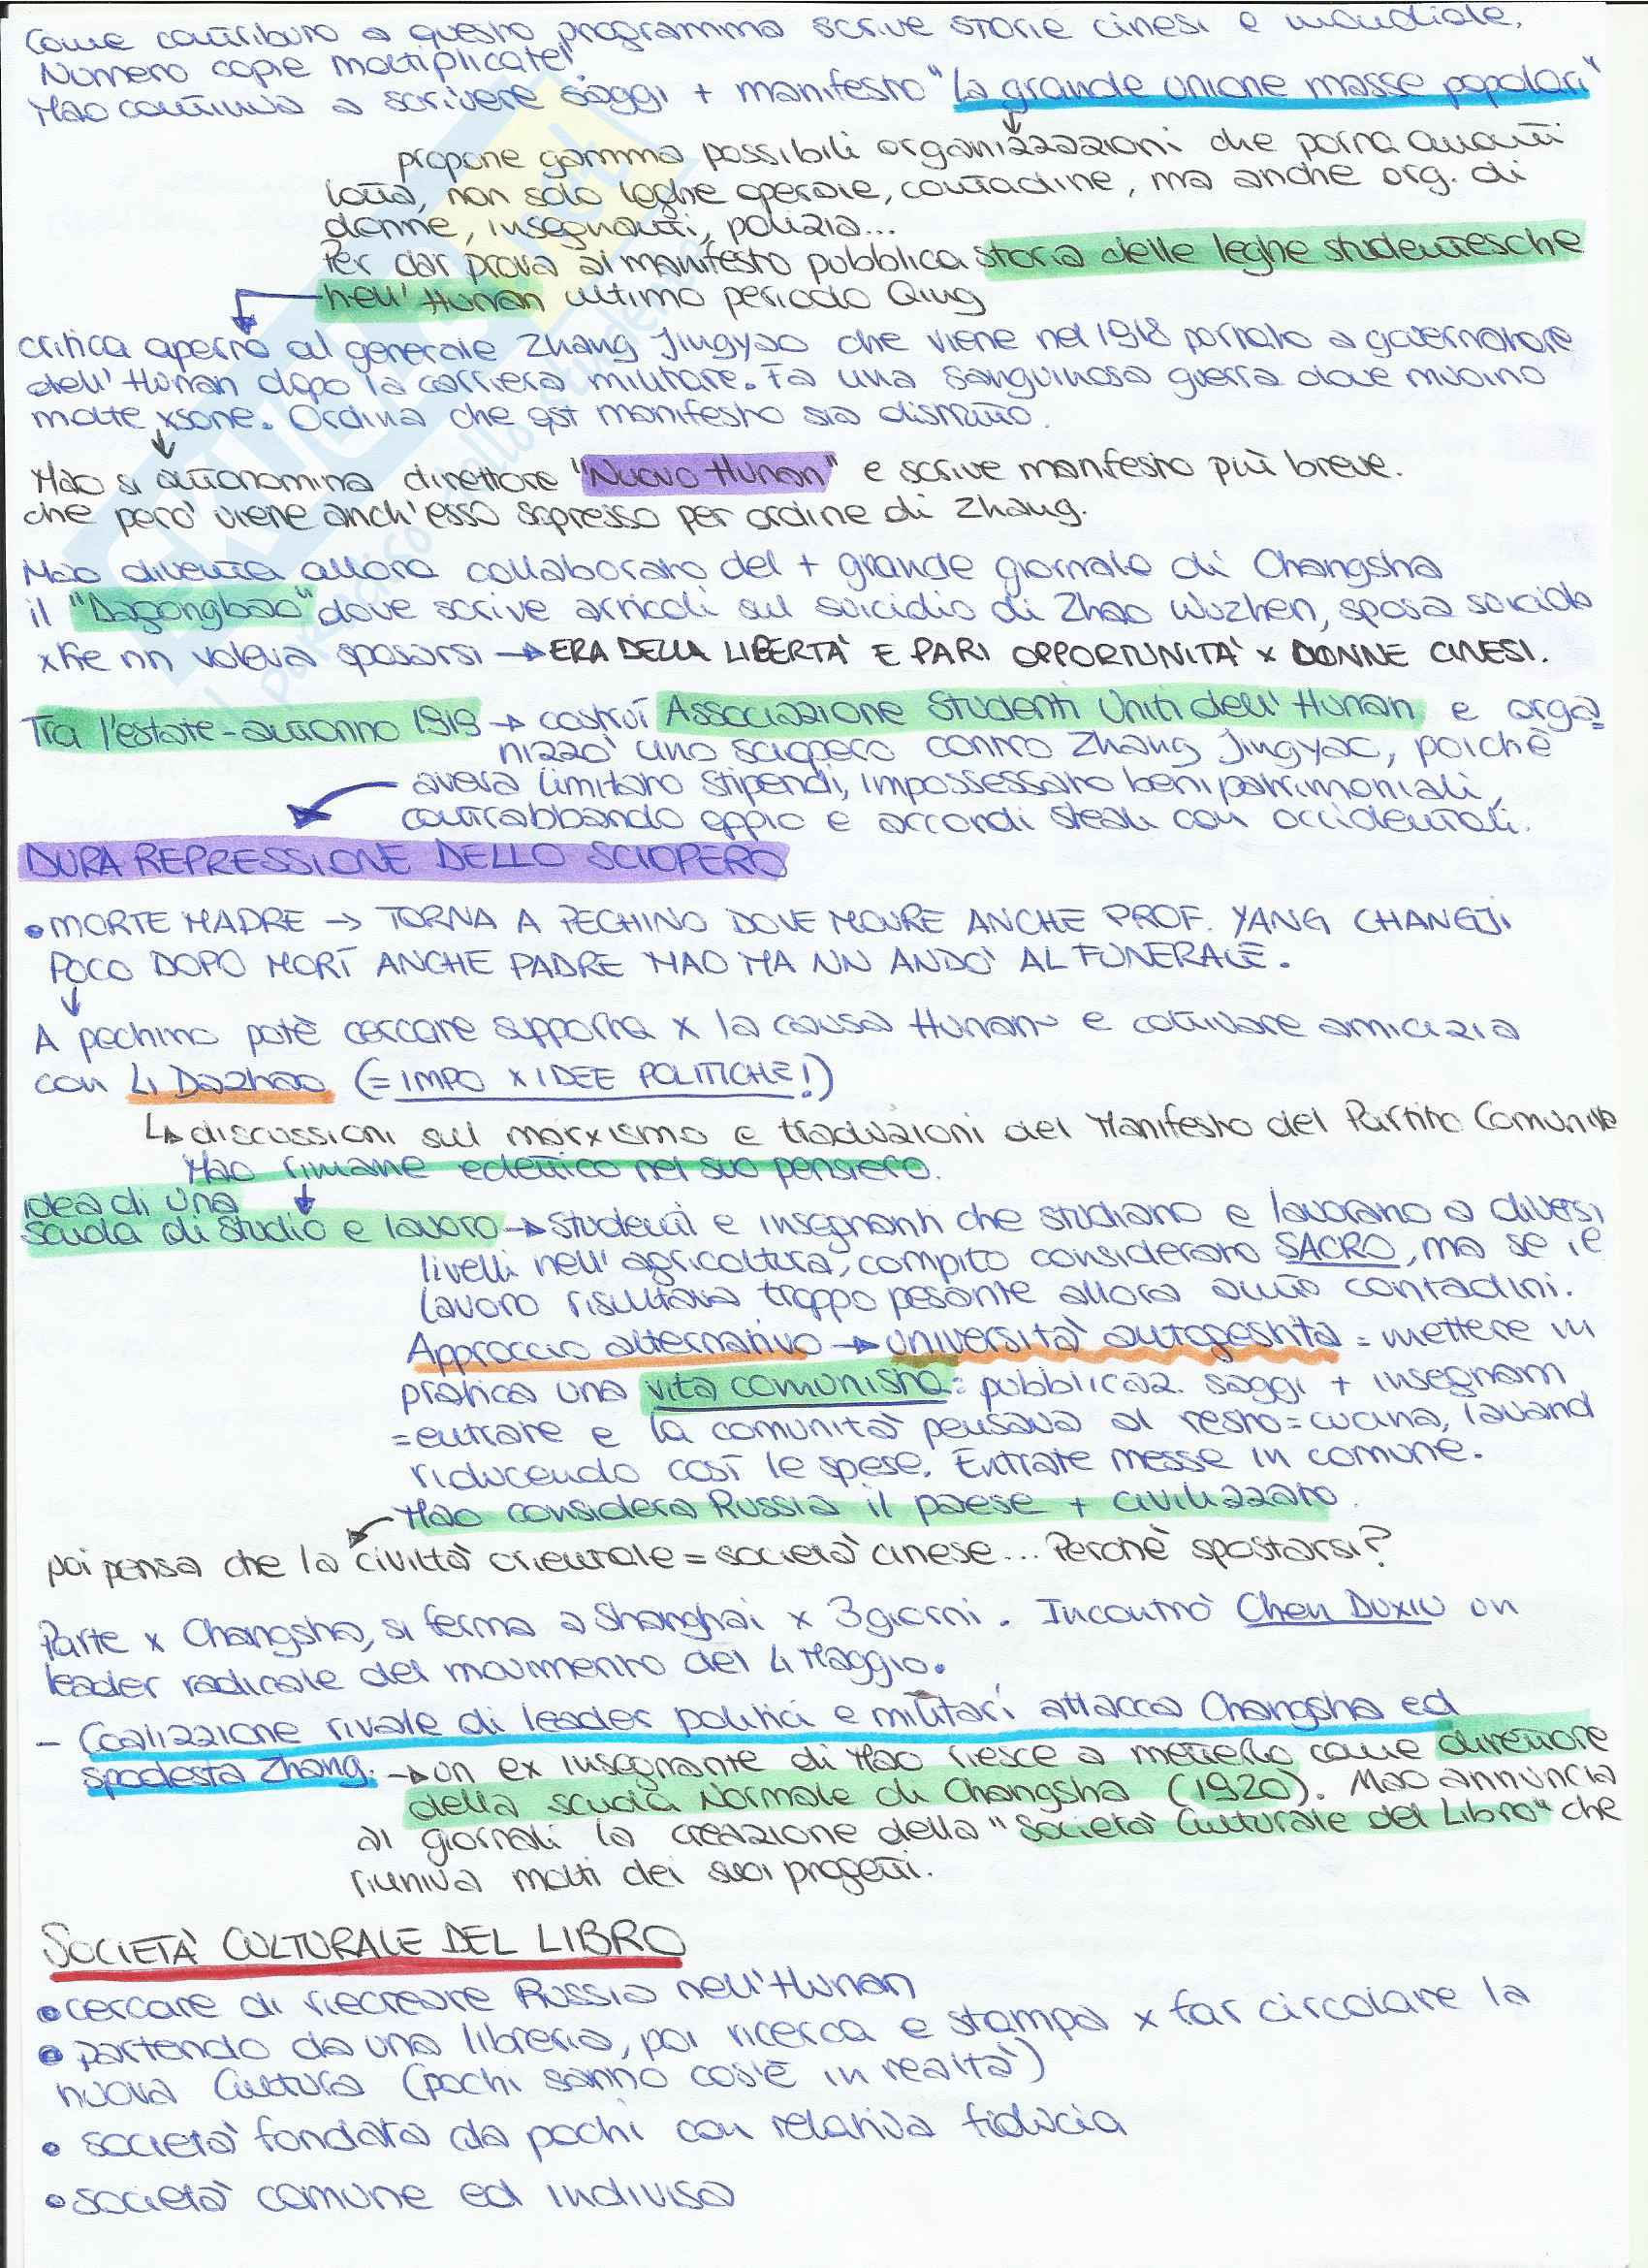 Come contributo a questo programma scrive storie cinesi e mondiale.
Numero copie moltiplicate!
Mao continua a scrivere saggi + manifesto "La grande unione masse popolari"
propone gamma possibili organizzazioni che porna avanti
lotta, non solo leghe operaie, contadine, ma anche org. di
donne, insegnanti, polizia...
Per dar prova al manifesto pubblica storia delle leghe studentesche
nell'Hunan ultimo periodo Qing
critica aperta al generale Zhang Jingyao che viene nel 1918 portato a governatore
dell'Hunan dopo la carriera militare. Fa una sanguinosa guerra dove muoino
molte xsone. Ordina che qst manifesto sia distrutto.
Mao si autonomina direttore "Nuovo Hunan" e scrive manifesto più breve.
che però viene anch'esso sopresso per ordine di Zhang.
Mao diventa allora collaborato del + grande giornale di Changsha
il "Dagongbao" dove scrive articoli sul suicidio di Zhao Wuzhen, sposa suicida
xke nn voleva sposarsi → ERA DELLA LIBERTÀ E PARI OPPORTUNITÀ x DONNE CINESI.
Tra l'estate-autonno 1919 → costruì Associazione Studenti Uniti dell'Hunan e orga
nizzò uno sciopero contro Zhang Jingyao, poichè
aveva limitato stipendi, impossessato beni patrimoniali,
contrabbando oppio e accordi sleali con occidentali.
DURA REPRESSIONE DELLO SCIOPERO
• MORTE MADRE → TORNA A PECHINO DOVE MOURE ANCHE PROF. YANG CHANGJI
POCO DOPO MORÌ ANCHE PADRE MAO MA NN ANDÒ AL FUNERALE.
A pechino potè cercare supporta x la causa Hunan e coltivare amicizia
con Li Dazhao (= IMPO x IDEE POLITICHE!)
↳ discussioni sul marxismo e traduzioni del Manifesto del Partito Comunista
Mao rimane eclettico nel suo pensiero.
idea di una
scuola di studio e lavoro → Studenti e insegnanti che studiano e lavorano a diversi
livelli nell'agricoltura, compito considerato SACRO, ma se il
lavoro risultava troppo pesante allora aiuto contadini.
Approccio alternativo → università autogestita = mettere in
pratica una vita comunista: pubblicaz. saggi + insegnam
= entrare e la comunità pensava al resto = cucina, lavand
riducendo così le spese. Entrate messe in comune.
Mao considera Russia il paese + civilizzato.
poi pensa che la civiltà orientale = società cinese... Perchè spostarsi?
Parte x Changsha, si ferma a Shanghai x 3 giorni. Incontrò Chen Duxiu un
leader radicale del movimento del 4 Maggio.
- Coalizzione rivale di leader politici e militari attacca Changsha ed
spodesta Zhang. → un ex insegnante di Mao riesce a metterlo come direttore
della scuola Normale di Changsha (1920). Mao annuncia
ai giornali la creazione della "Società Culturale del Libro" che
riuniva molti dei suoi progetti.
SOCIETÀ CULTURALE DEL LIBRO
• cercare di riecreare Russia nell'Hunan
• partendo da una libreria, poi ricerca e stampa x far circolare la
nuova Cultura (pochi sanno cos'è in realtà)
• società fondata da pochi con relativa fiducia
• società comune ed indivisa